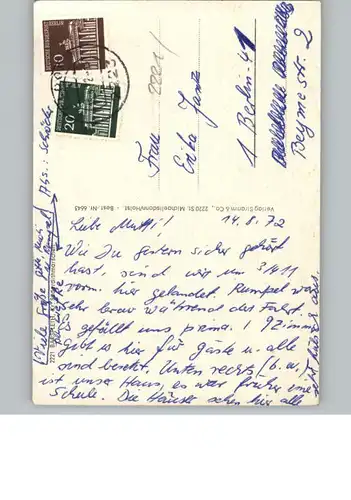 DEUTSCHE BUNDESPOST
BERLIN
20
2221
Frau
Erika
1 Berlin 41
Beymestr. 2
Abs.: Schröder
Verlag Stramm & Co., 2220 St. Michaelisdonn/Holst. - Best.-Nr. 6643
14.8.72
Liebe Mutti!
Wie Du gestern sicher gehört
hast, sind wir um 3/4 11
vorm. hier gelandet. Rumpel war
sehr brav während der Fahrt.
Es gefällt uns prima. 1 9 Zimmer
gibt es hier für Gäste u. alle
sind besetzt. Unten rechts (b. w.)
ist unser Haus, es war früher eine
Schule. Die Häuser sehen hier alle
sehr hübsch aus.
Viele Grüße